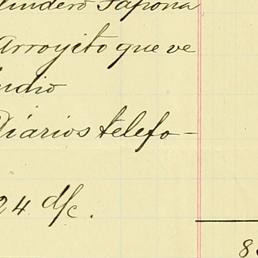 lindero Tapona
Arroyito que ve
indio
Diarios telefo-
24 d/c.
8